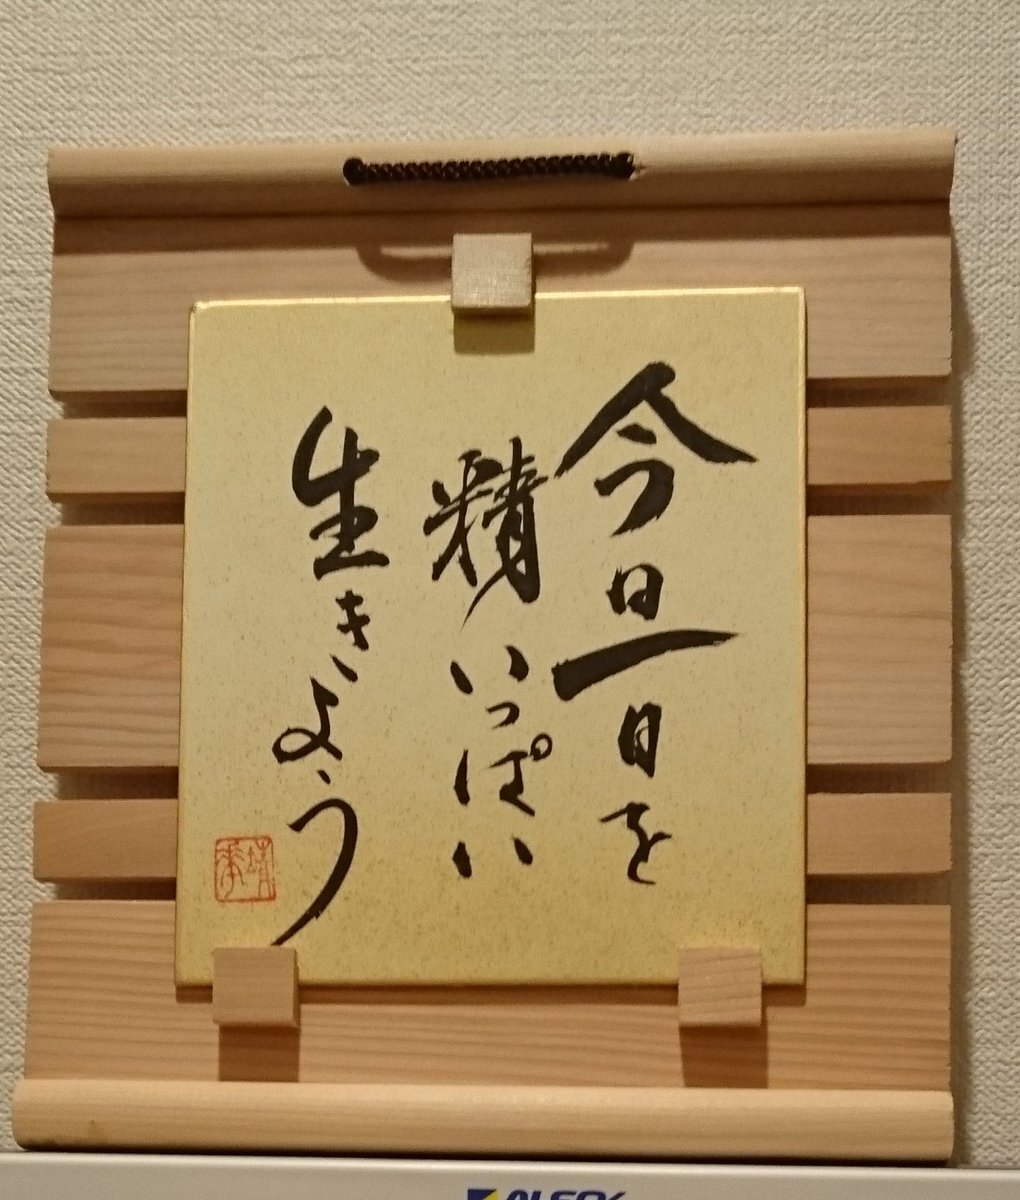 今日一日を
精いっぱい
生きよう